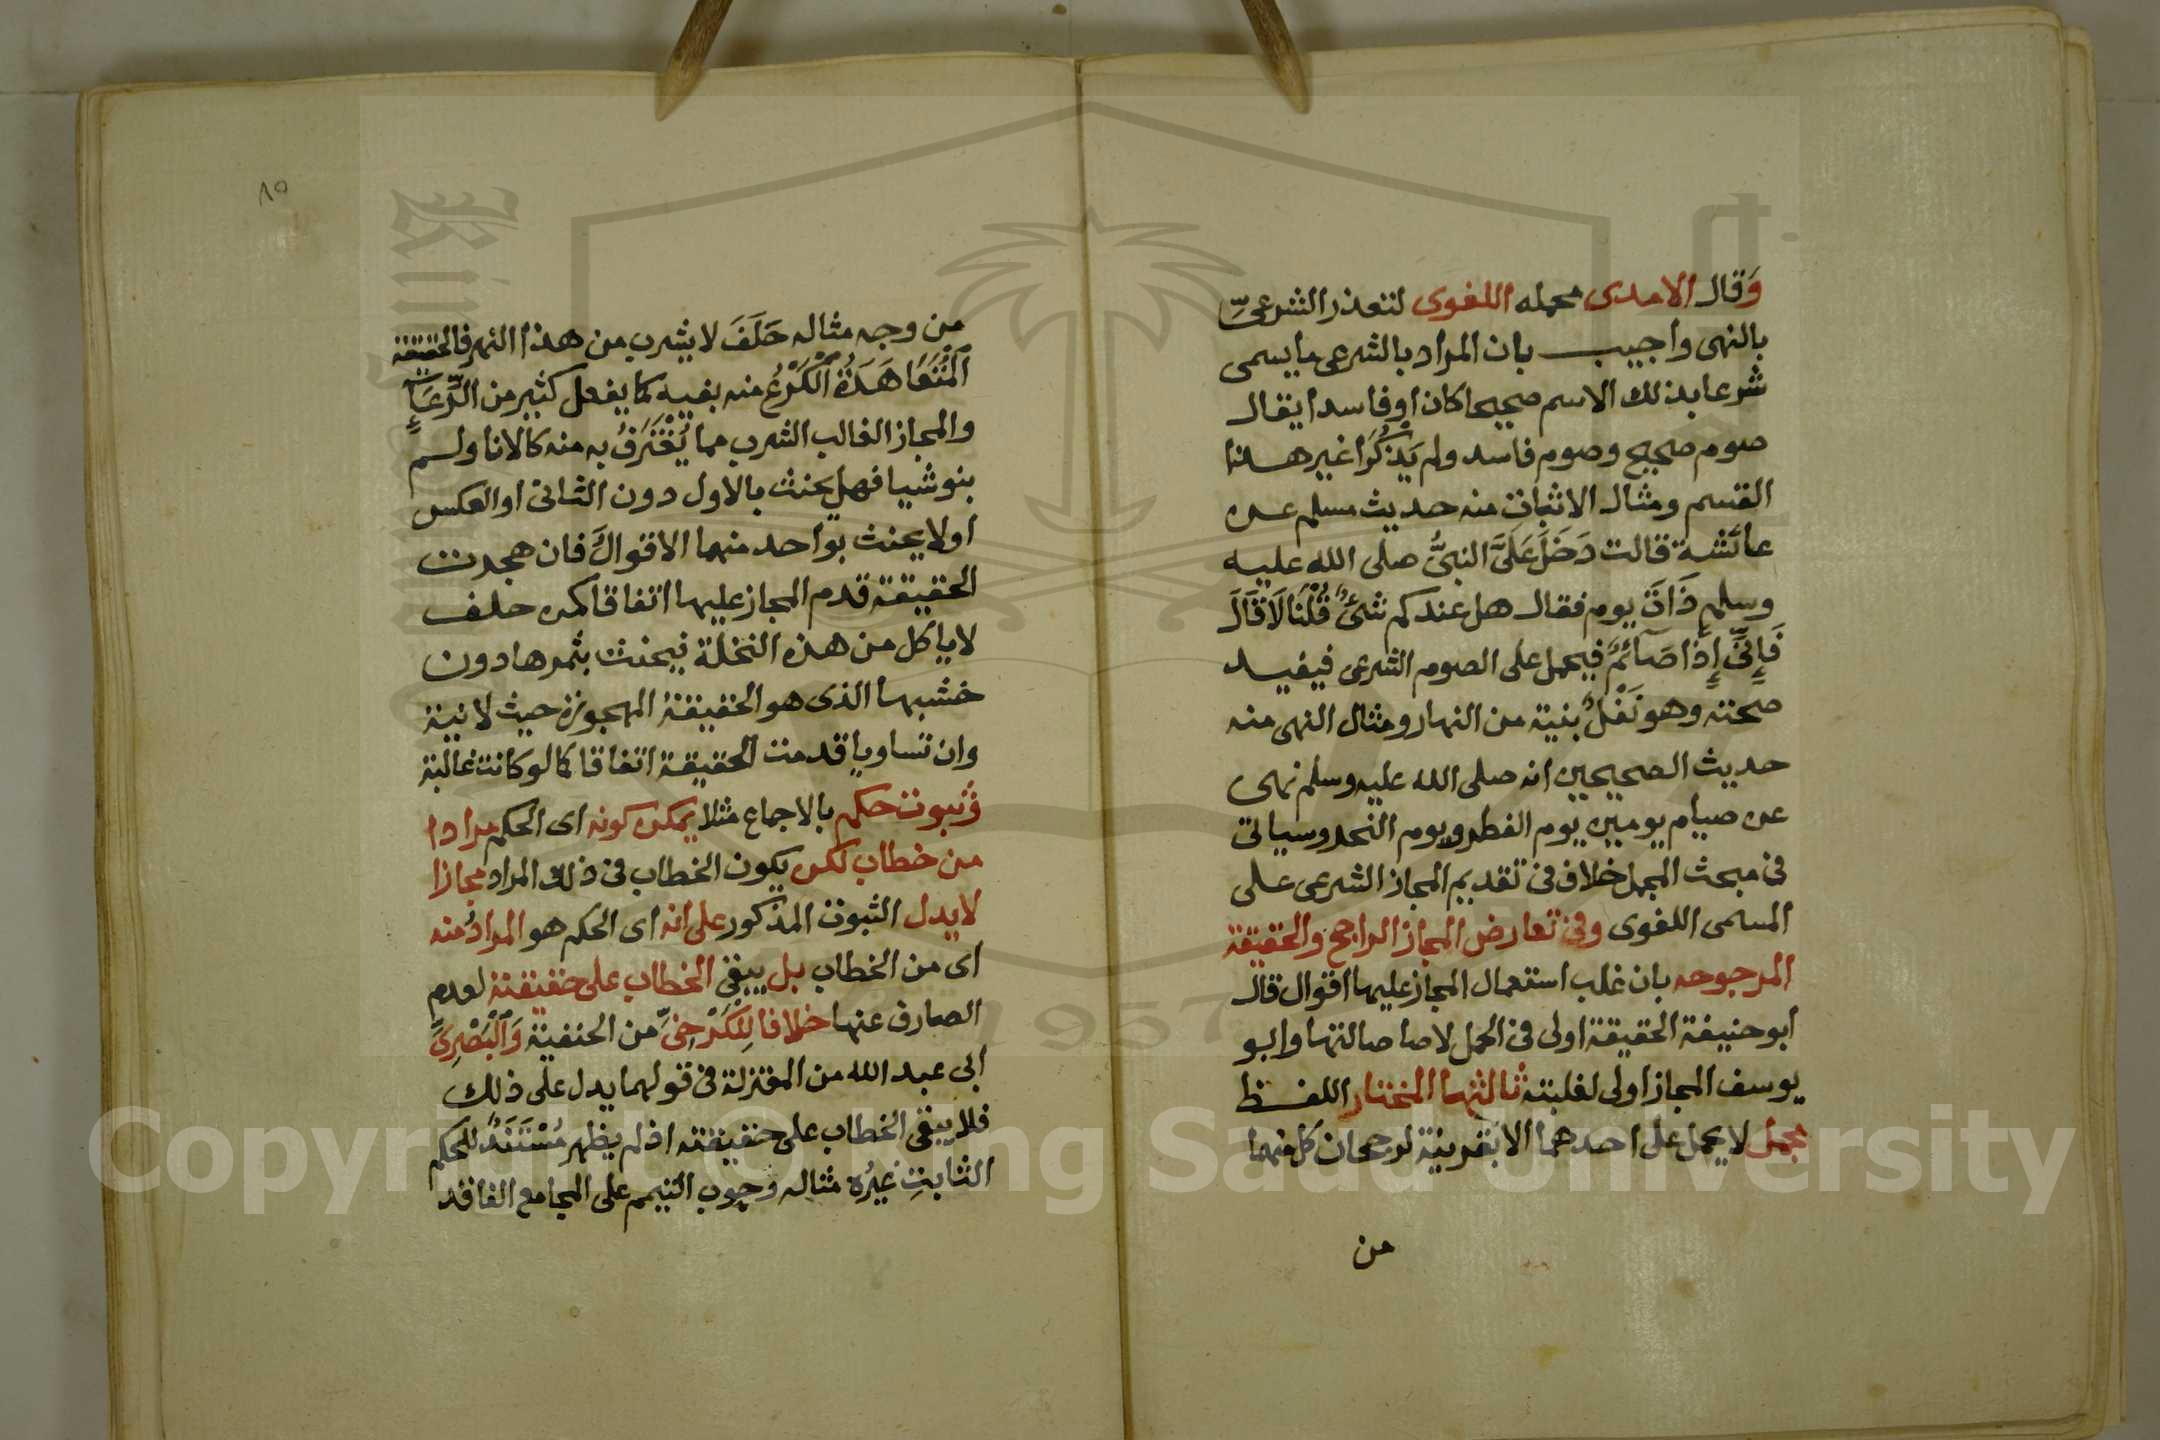 وَقال الامدى محمله اللغوى لتعذر الشرعىِّ
بالنهى واجيب بان المراد بالشرعى ما يسمى
شرعا بذلك الاسم صحيحا كان او فاسدا يقال
صوم صحيح وصوم فاسد ولم يَذْكُرَا غير هذا
القسم ومثال الاثبات منه حديث مسلم عن
عائشة قالت دَخَلَ عَلَىَّ النبىُّ صلى الله عليه
وسلم ذَاتَ يوم فقال هل عندكم شَىْءٌ قُلْنَا لَا قَالَ
فَإِنِّى إِذًا صَآئمٌ فيحمل على الصوم الشرعى فيفيد
صحته وهو نَفْلٌ بنية من النهار ومثال النهى منه
حديث الصحيحين انه صلى الله عليه وسلم نهى
عن صيام يومين يوم الفطر ويوم النحر وسياتى
فى مبحث المجمل خلاف فى تقديم المجاز الشرعى على
المسمى اللغوى وفى تعارض المجاز الراجح والحقيقة
المرجوحه بان غلب استعمال المجاز عليها اقوال قال
ابو حنيفة الحقيقة اولى فى الحمل لاصا صالتها وابو
يوسف المجاز اولى لغلبته ثالثها المختار اللفظ
مجمل لا يحمل على احدهما الا بقرينة لرجحان كل منهما
من
٨٥
من وجه مثاله حَلَفَ لا يشرب من هذا النهر فالحقيقة
الْمُتَعَاهَدَةُ الْكَرْعُ منه بفيه كما يفعل كثير من الرِّعَاءِ
والمجاز الغالب الشرب مما يُغْتَرَفُ به منه كالانا ولم
ينو شيا فهل يحنث بالاول دون الثانى او العكس
اولا يحنث بواحد منهما الاقوال فان هجرت
الحقيقة قدم المجاز عليها اتفاقا كمن حلف
لا ياكل من هذه النخلة فيحنث بثمرها دون
خشبها الذى هو الحقيقة المهجورة حيث لا نية
وان تساويا قدمت الحقيقة اتفاقا كما لو كانت غالبة
وَثبوت حكم بالاجماع مثلا يمكن كونه اى الحكم مرادا
من خطاب لكن يكون الخطاب فى ذلك المراد مجازا
لا يدل الثبوت المذكور على انه اى الحكم هو المراد منه
اى من الخطاب بل يبقى الخطاب على حقيقته لعدم
الصارف عنها خلافا لِلْكَرْخِىِّ من الحنفية وَالْبَصْرِىِّ
ابى عبد الله من المعتزلة فى قولهما يدل على ذلك
فلا يبقى الخطاب على حقيقته اذ لم يظهر مُسْتَنَدٌ للحكم
الثابتِ غيْرُه مثاله وجوب التيمم على المجامع الفاقد
Copyright © King Saud University
1957